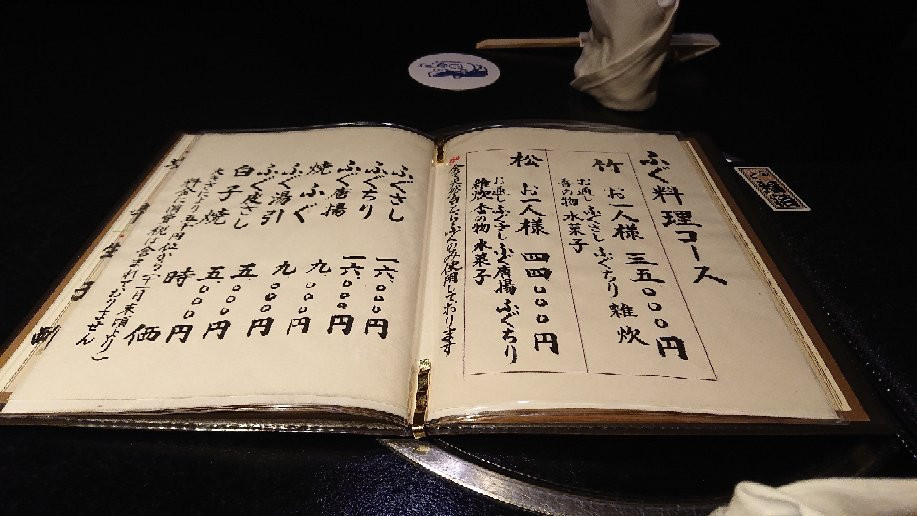 ふぐ料理コース
竹 お一人様 三五〇〇〇円
お通し ふぐさし ふぐちり 雑炊
香の物 水菓子
松 お一人様 四四〇〇〇円
お通し ふぐさし ふぐ唐揚 ふぐちり
雑炊 香の物 水菓子
のみ使用しております
ふぐさし 一六〇〇〇円
ふぐちり 一六〇〇〇円
ふぐ唐揚 九〇〇〇円
焼ふぐ 九〇〇〇円
ふぐ湯引 五〇〇〇円
ふぐ煮こごし 五〇〇〇円
白子焼 時価
大きさにより五千円位から(十二月末頃より)
料金に消費税は含まれておりません